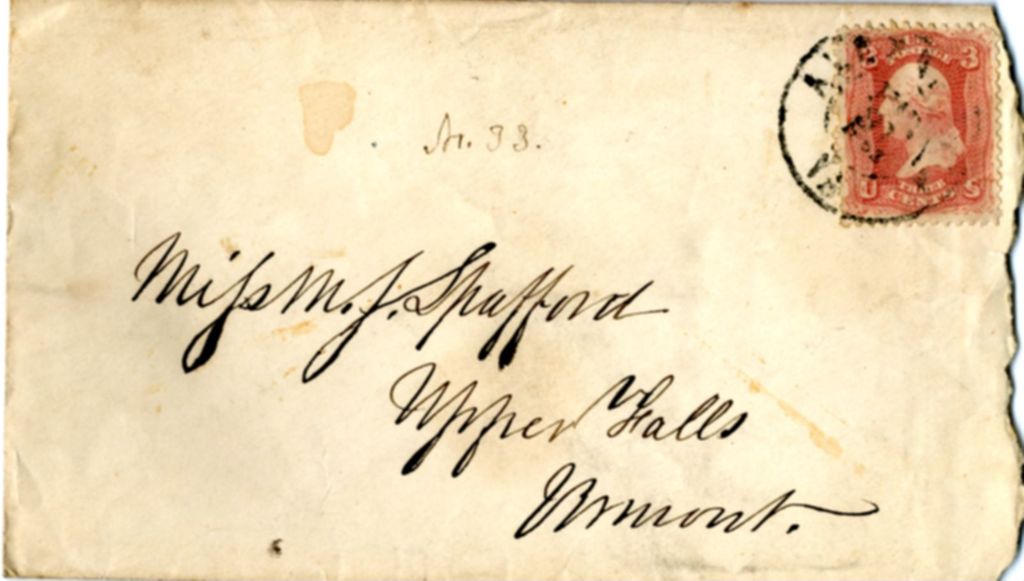 No. 33.
Miss M. J. Spafford
Upper Falls
Vermont.
3 3
U S
THREE
CENTS